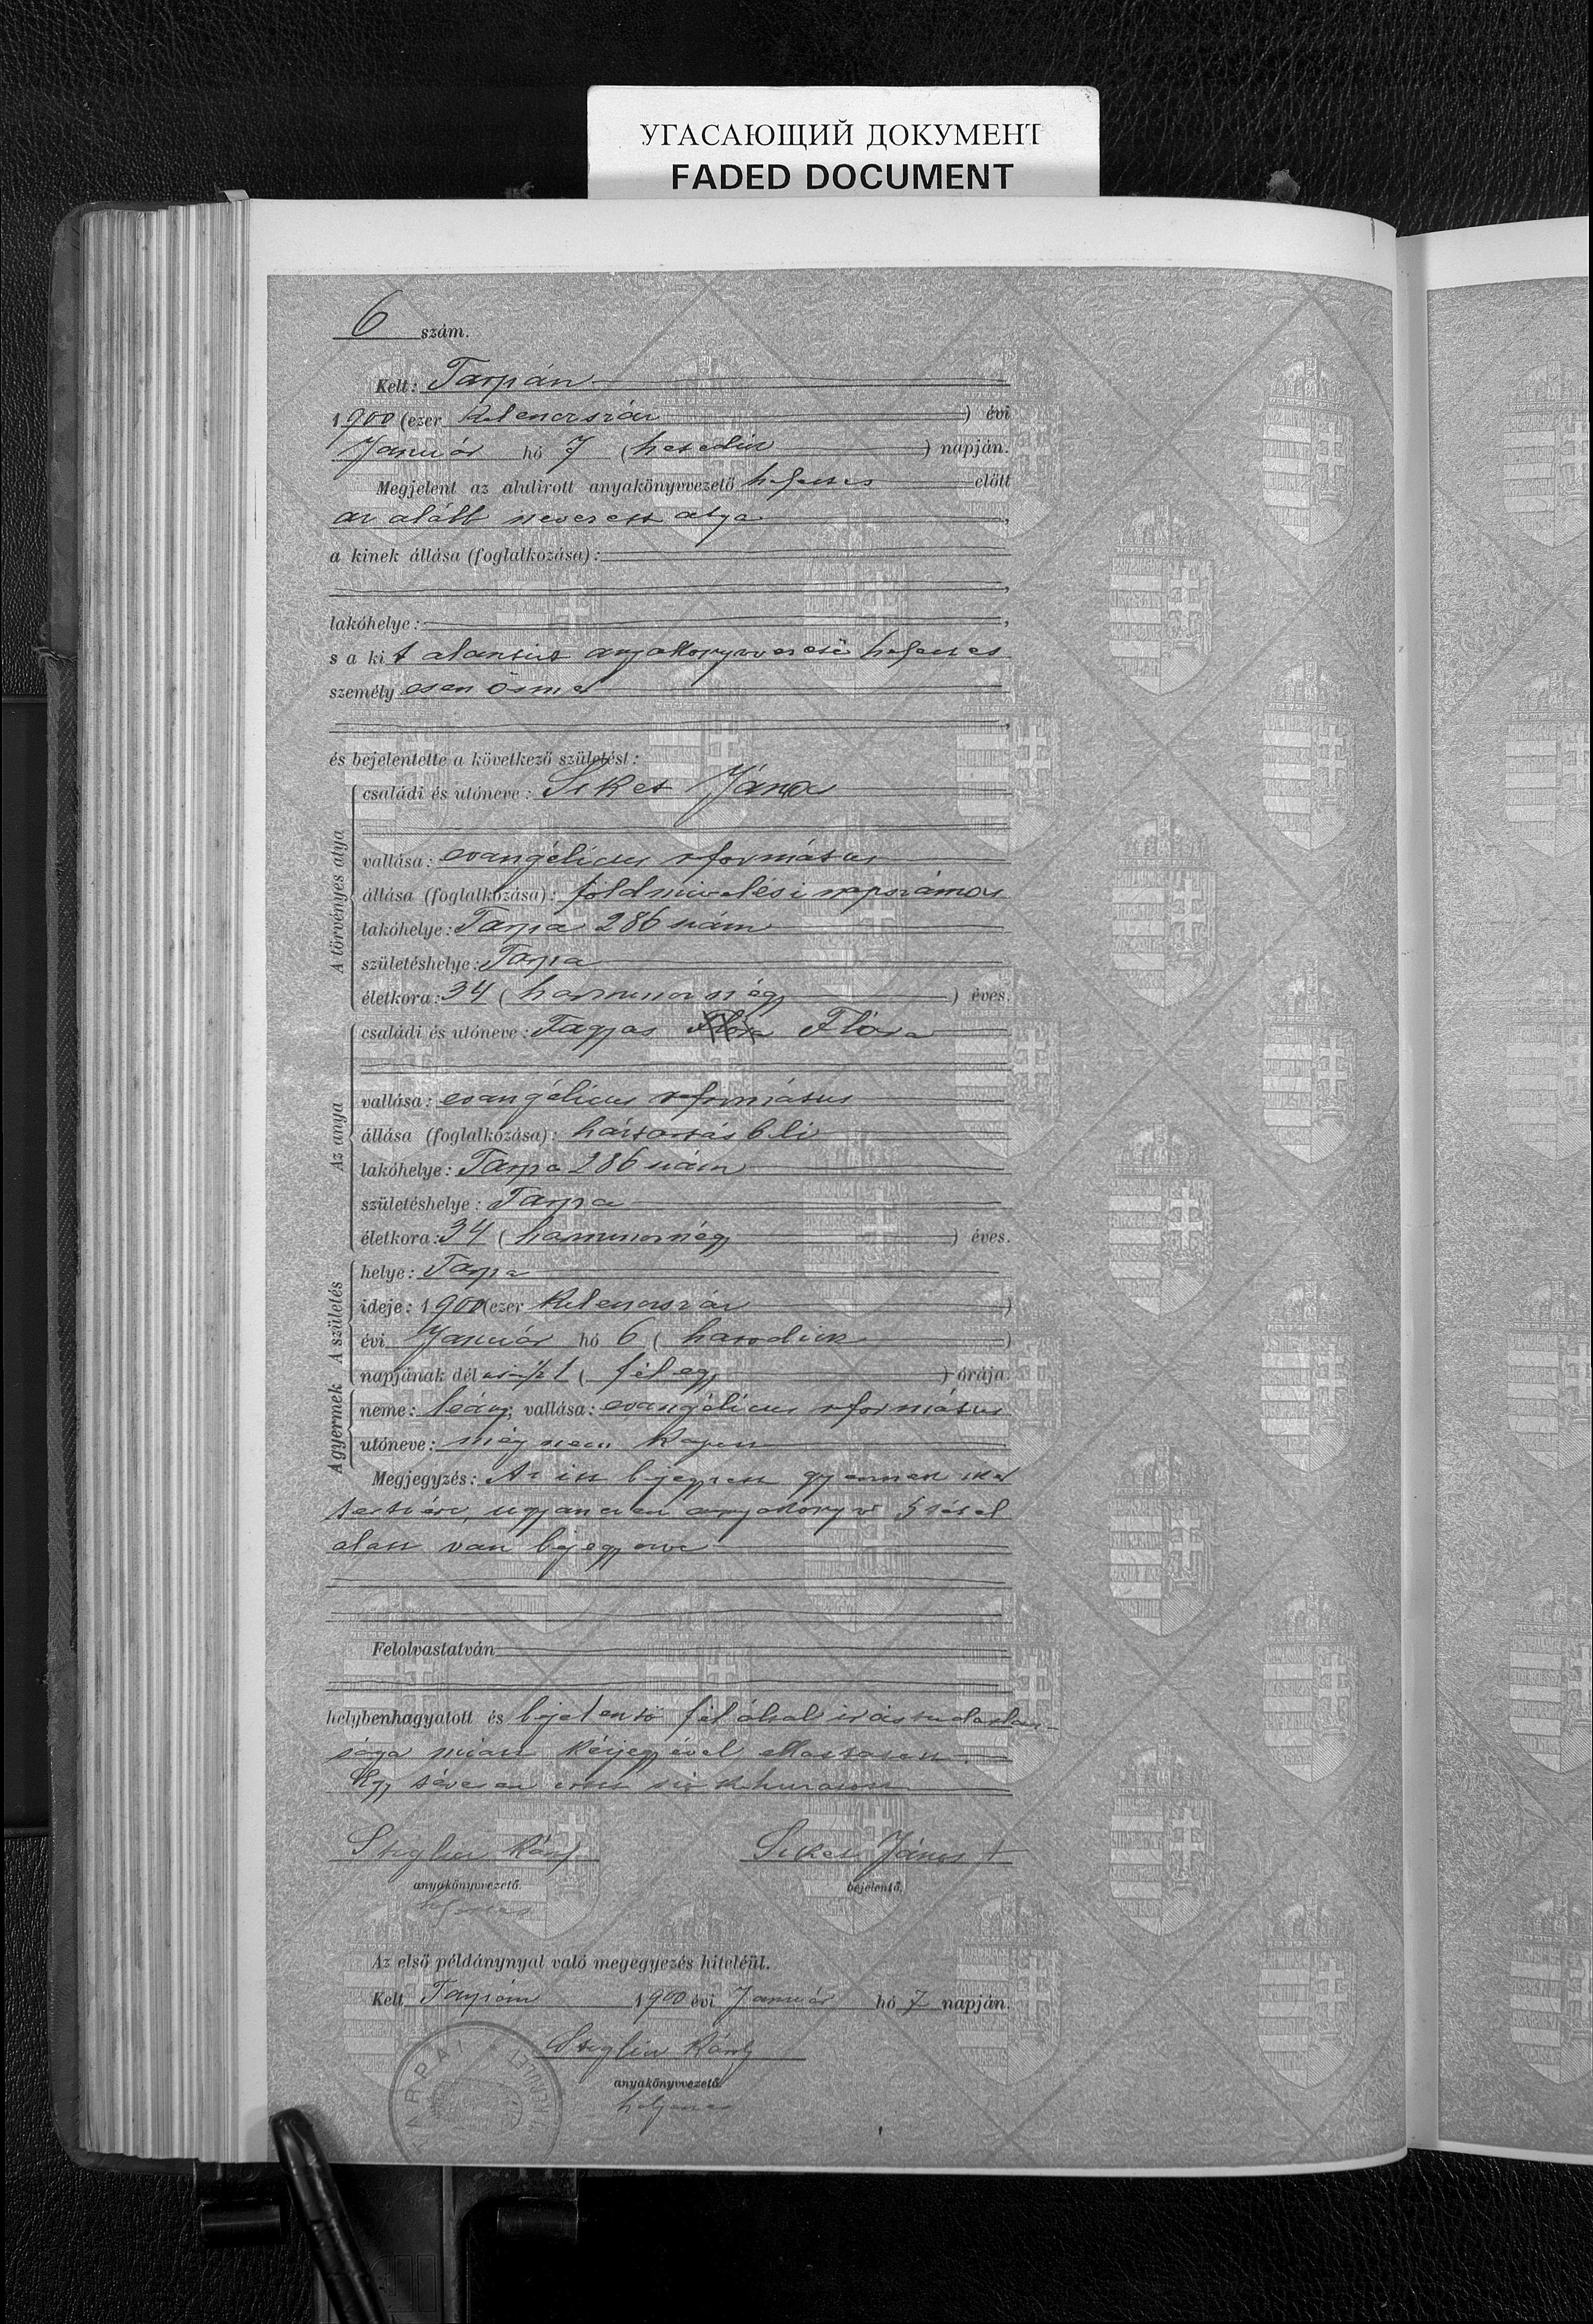 УГАСАЮЩИЙ ДОКУМЕНТ
FADED DOCUMENT
6 szám.
Kelt: Tarpán
1900 (ezer kilenczszáz) évi
Január hó 7 (hetedik) napján.
Megjelent az alulirott anyakönyvvezető helyettes előtt
az alább nevezett atya,
a kinek állása (foglalkozása):
lakóhelye:
s a kit alantirt anyakönyvvezető helyettes
személyesen ösmer
és bejelentette a következő születést:
A törvényes atya
családi és utóneve: Siket János
vallása: evangélicus református
állása (foglalkozása): földmivelési napszámos
lakóhelye: Tarpa 286 szám
születéshelye: Tarpa
életkora: 34 (harmincznégy) éves.
Az anya
családi és utóneve: Flóra Flóra
vallása: evangélicus református
állása (foglalkozása): háztartásbeli
lakóhelye: Tarpa 286 szám
születéshelye: Tarpa
életkora: 34 (harmincznégy) éves.
A születés
helye: Tarpa
ideje: 1900 (ezer kilenczszáz)
évi Január hó 6 (hatodik)
napjának dél után ½ 1 (fél egy) órája.
A gyermek
neme: leány; vallása: evangélicus református
utóneve: még nem kapott
Megjegyzés: Az itt bejegyzett gyermek iker
testvére, ugyanezen anyakönyv 5 tétel
alatt van bejegyezve
Felolvastatván
helybenhagyatott és bejelentő fél által irástudatlan-
sága miatt kézjegyével elláttatott.
Egy téves
Stiglicz Károly
anyakönyvvezető.
helyettes
Siket János +
bejelentő.
Az első példánynyal való megegyezés hiteléül.
Kelt Tarpán 1900 évi Január hó 7 napján.
Stiglicz Károly
anyakönyvvezető.
helyettes
TARPAI KERÜLET